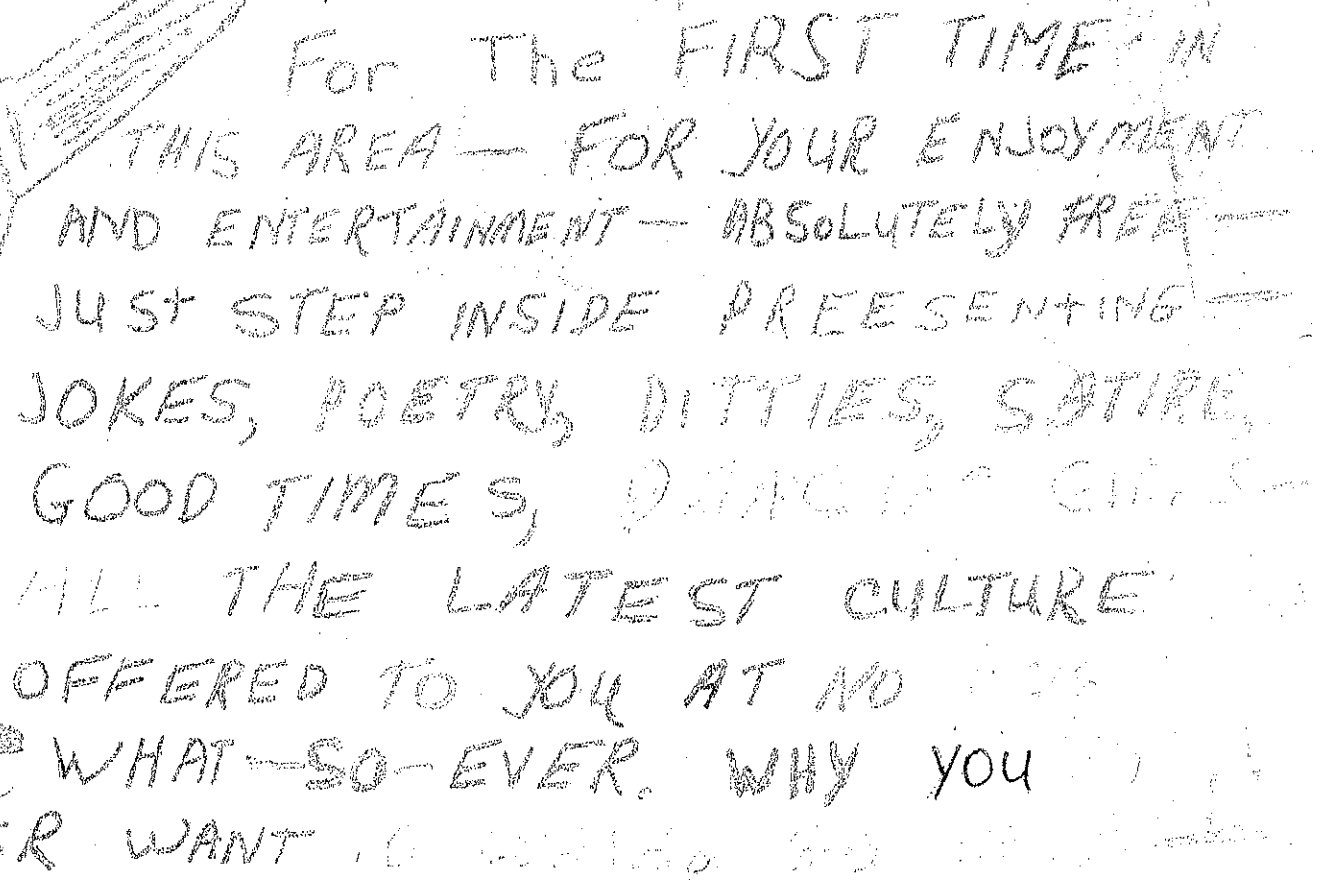 For The FIRST TIME IN
THIS AREA — FOR YOUR ENJOYMENT
AND ENTERTAINMENT — ABSOLUTELY FREE —
JUST STEP INSIDE PREESENTING —
JOKES, POETRY, DITTIES, SATIRE,
GOOD TIMES,
ALL THE LATEST CULTURE
OFFERED TO YOU AT NO
WHAT—SO—EVER. WHY YOU
WANT